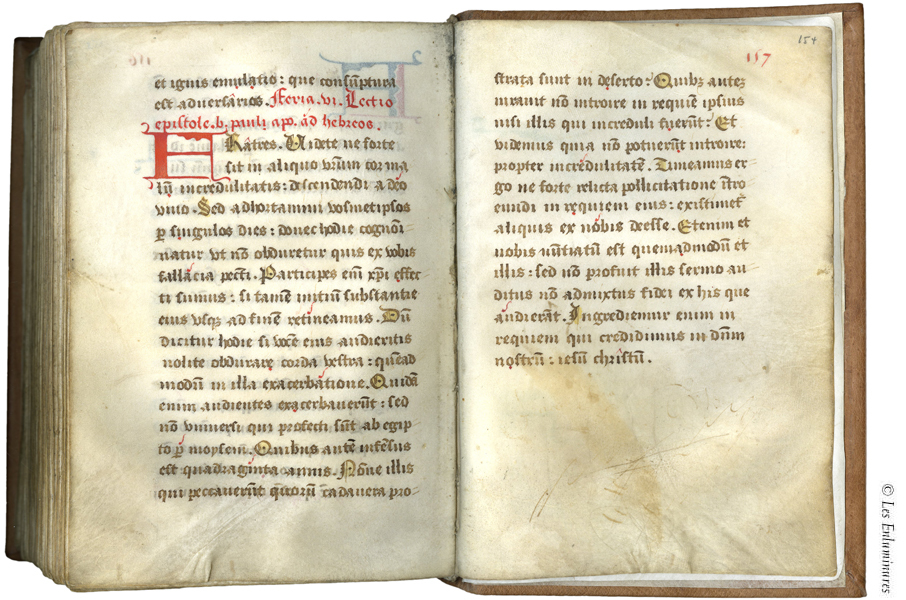 et ignis emulatio: que consūptura
est adversarios. Feria. vi. Lectio
epistole. b. pauli apo. ad hebreos.
FRatres. Videte ne forte
sit in aliquo vrūm cor ma
lū incredulitatis: descendendi a deo
vivo. Sed adhortamini vosmetipsos
p singulos dies: donec hodie cognōi
natur vt nō obduretur quis ex vobis
fallacia pcti. Participes enī xp̄i effec
ti sumus: si tamē initiū substantie
eius vsq ad finē retineamus. Dū
dicitur hodie si vocē eius audieritis
nolite obdurare corda vestra: quēad
modū in illa exacerbatione. Quidā
enim audientes exacerbaverūt: sed
nō universi qui profecti sūt ab egip
to p moysem. Quibus autē infēsus
est quadraginta annis. Nōne illis
qui peccaverūt quorū cadavera pro-
154
157
strata sunt in deserto: Quibꝫ autem
iuravit nō introire in requiē ipsius
nisi illis qui increduli fuerūt: Et
videmus quia nō potuerūt introire:
propter incredulitatē. Timeamus er
go ne forte relicta pollicitatione ītro
eundi in requiem eius: existimet
aliquis ex nobis deesse. Etenim et
nobis nūtiatū est quemadmodū et
illis: sed nō profuit illis sermo au
ditus nō admixtus fidei ex his que
audierāt. Ingrediemur enim in
requiem qui credidimus in dn̄m
nostrū: iesū christū.
© Les Enluminures